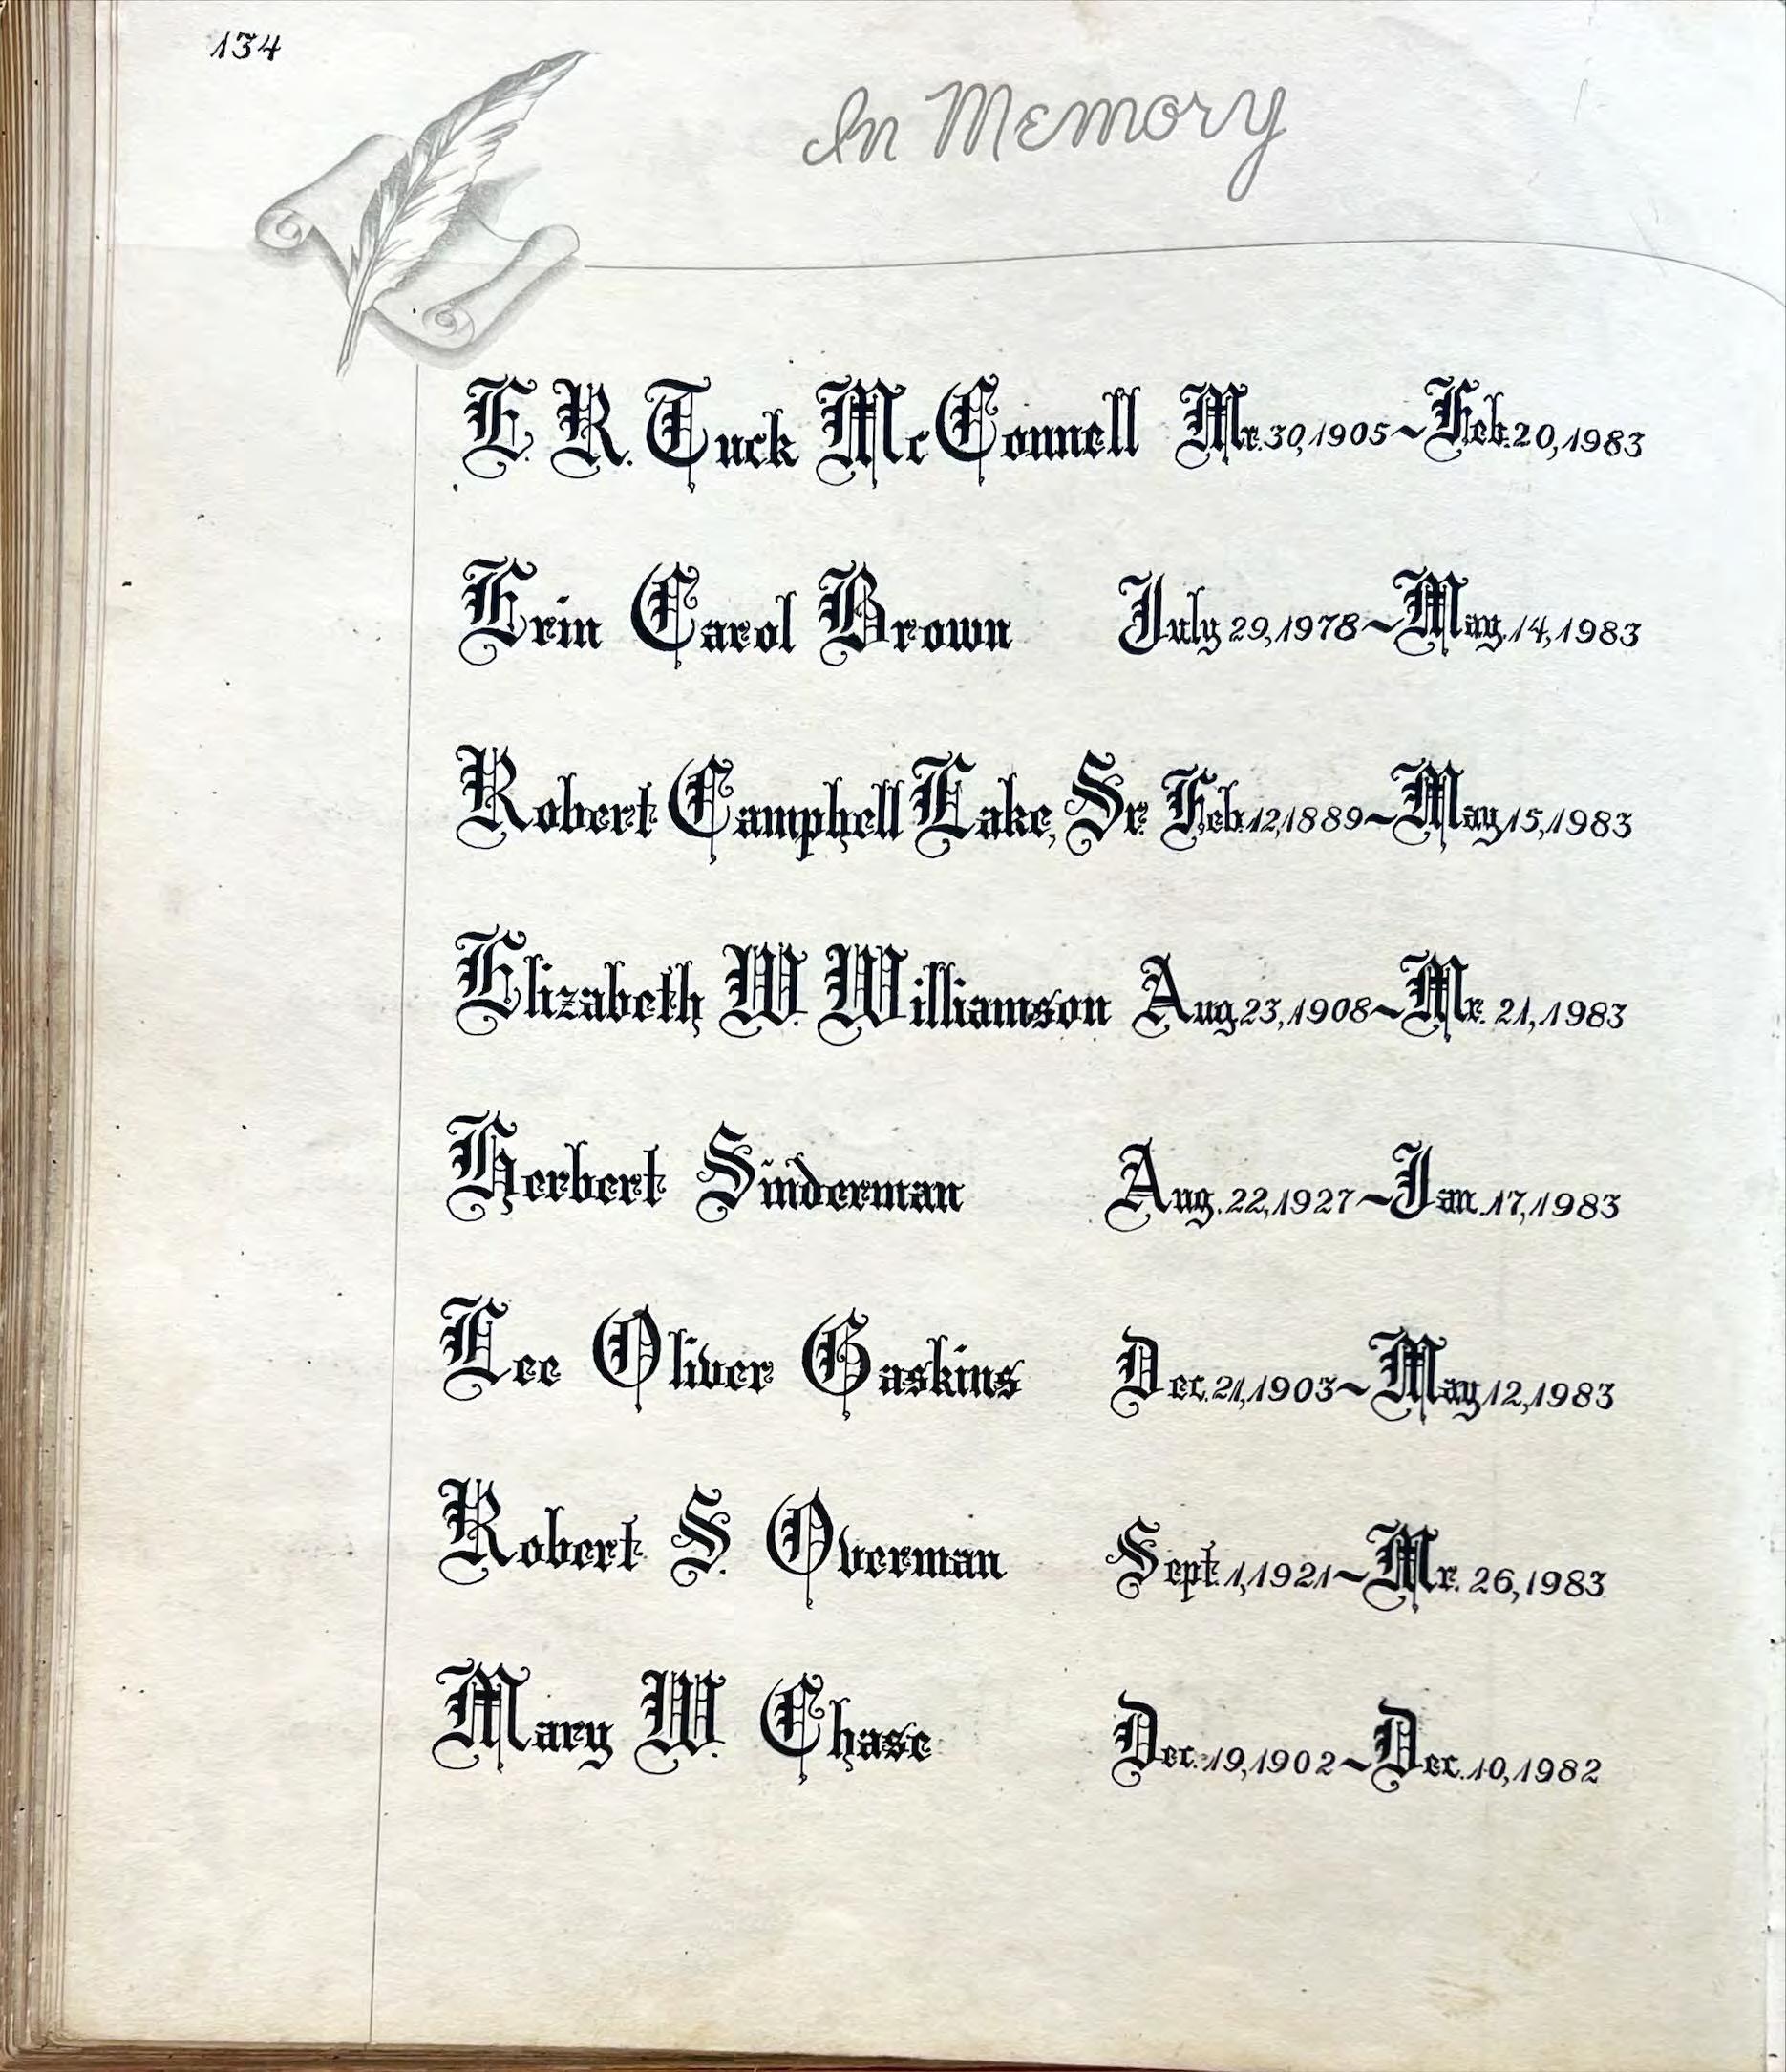 134
In Memory
E. R. Tuck McConnell Mr. 30, 1905 ~ Feb. 20, 1983
Erin Carol Brown July 29, 1978 ~ May. 14, 1983
Robert Campbell Lake, Sr. Feb. 12, 1889 ~ May 15, 1983
Elizabeth W. Williamson Aug 23, 1908 ~ Mr. 21, 1983
Herbert Sinderman Aug. 22, 1927 ~ Jan. 17, 1983
Lee Oliver Gaskins Dec. 21, 1903 ~ May 12, 1983
Robert S. Overman Sept. 1, 1921 ~ Mr. 26, 1983
Mary W. Chase Dec. 19, 1902 ~ Dec. 10, 1982